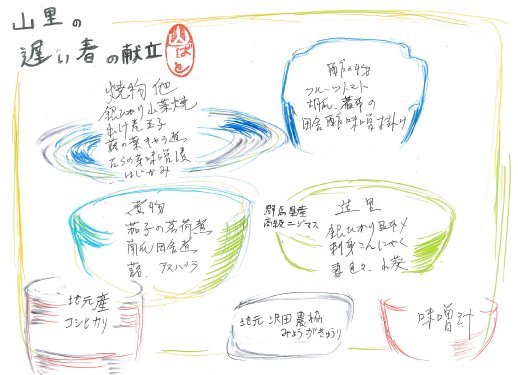 山里の
遅い春の献立
焼物 他
銀ひかり山菜焼
出汁巻玉子
蕗の葉きゃら煮
たらの芽味噌漬
はじかみ
酢の物
フルーツトマト
胡瓜 若布の
田舎酢味噌掛け
煮物
茄子の茗荷煮
南瓜田舎煮
蕗 アスパラ
群馬県産
高級ニジマス
造里
銀ひかり
刺身こんにゃく
地元産
コシヒカリ
地元 沢田農協
みょうがきゅうり
味噌汁